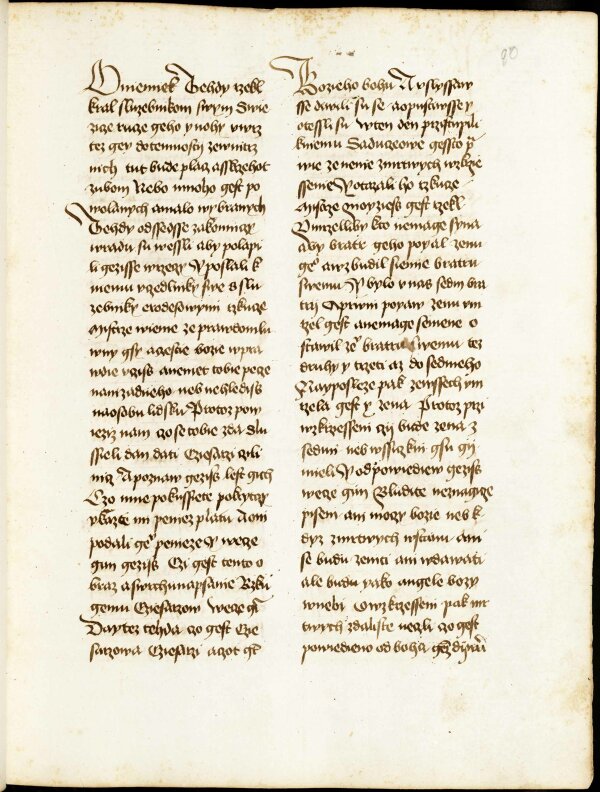 Onieniek Tehdy rzekl
kral sluzebnikom swym Swie
zize ruze geho y nohy wwrz
tez gey dotemnosty zewnitrz
nich tut bude placz asskrzehot
zubom Nebo mnoho gest po
wolanych amalo wybranych
Tehdy odssedsse zakonniczy
wradu su wessli aby polapi
li gezisse wrzeczy Y poslali k
niemu vczedlniky swe s slu
zebniky erodesowymi rzkuze
Mistrze wieme ze prawdomlu
wny gsy aczestie bozie wpra
wdie vczis anemet tobie pecze
nam zadneho neb nehledis
naosobu lidsku Protoz pow
iez nam czo se tobie zda Slu
ssieli dan dati Czesarzi czili
nicz Apoznaw gezis lest gich
Czo mne pokussiete pokrytczy
vkazte mi peniez platu Aoni
podali ge° penieze Y wece
gim gezis Czi gest tento o
braz aswrchunapsanie Rzku
gemu Ciesarzow wece gim
Daytez tehda czo gest Cie
sarzowa Ciesarzi aczoz gt
Bozieho bohu A vslyssaw
sse diwili su se aopustiwsse y
otessli su Wten den przistupili
kniemu Saduczeowe gessto pra
wie ze nenie zmrtwych wzkrzie
ssenie Y otazali ho rzkuze
Mistrze moyziess gest rzekl
Vmrzelliby kto nemage syna
Aby bratr geho poyal zenu
ge° awzbudil siemie bratru
swemu Y bylo v nas sedm bra
trzi Aprwni poyaw zenu vm
rzel gest anemage semene o
stawil ze° bratru swemu tez
druhy y trzeti az do sedmeho
Nayposleze pak zewssech vm
rzela gest y zena Protoz przi
wzkrzesseni czi bude zena z
sedmi neb wssiczkni gsu gi
mieli Y odpowiediew geziss
wece gim Bludite neznagicze
pisem ani moczy bozie neb k
dyz zmrtwych wstanu ani
se budu zeniti ani wdawati
ale budu yako angele bozy
wnebi Owzkrzesseni pak mr
twych zdaliste neczli czo gest
powiedieno od boha